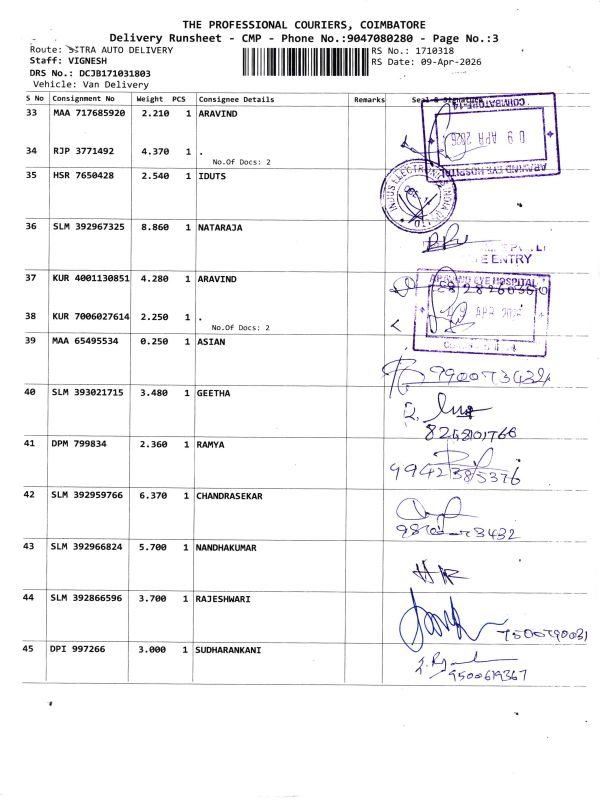 THE PROFESSIONAL COURIERS, COIMBATORE
Delivery Runsheet - CMP - Phone No.:9047080280 - Page No.:3
Route: SITRA AUTO DELIVERY
RS No.: 1710318
Staff: VIGNESH
RS Date: 09-Apr-2026
DRS No.: DCJB171031803
Vehicle: Van Delivery
S No Consignment No Weight PCS Consignee Details Remarks Seal & Signature
33 MAA 717685920 2.210 1 ARAVIND
COIMBATORE-14
09 APR 2026
ARAVIND EYE HOSPITAL
34 RJP 3771492 4.370 1 .
No.Of Docs: 2
35 HSR 7650428 2.540 1 IDUTS
36 SLM 392967325 8.860 1 NATARAJA
ENTRY
37 KUR 4001130851 4.280 1 ARAVIND
ARAVIND EYE HOSPITAL
9 APR 2026
38 KUR 7006027614 2.250 1 .
No.Of Docs: 2
39 MAA 65495534 0.250 1 ASIAN
9900733432
40 SLM 393021715 3.480 1 GEETHA
8248101766
41 DPM 799834 2.360 1 RAMYA
9942385376
42 SLM 392959766 6.370 1 CHANDRASEKAR
43 SLM 392966824 5.700 1 NANDHAKUMAR
44 SLM 392866596 3.700 1 RAJESHWARI
7500790031
45 DPI 997266 3.000 1 SUDHARANKANI
9500619367